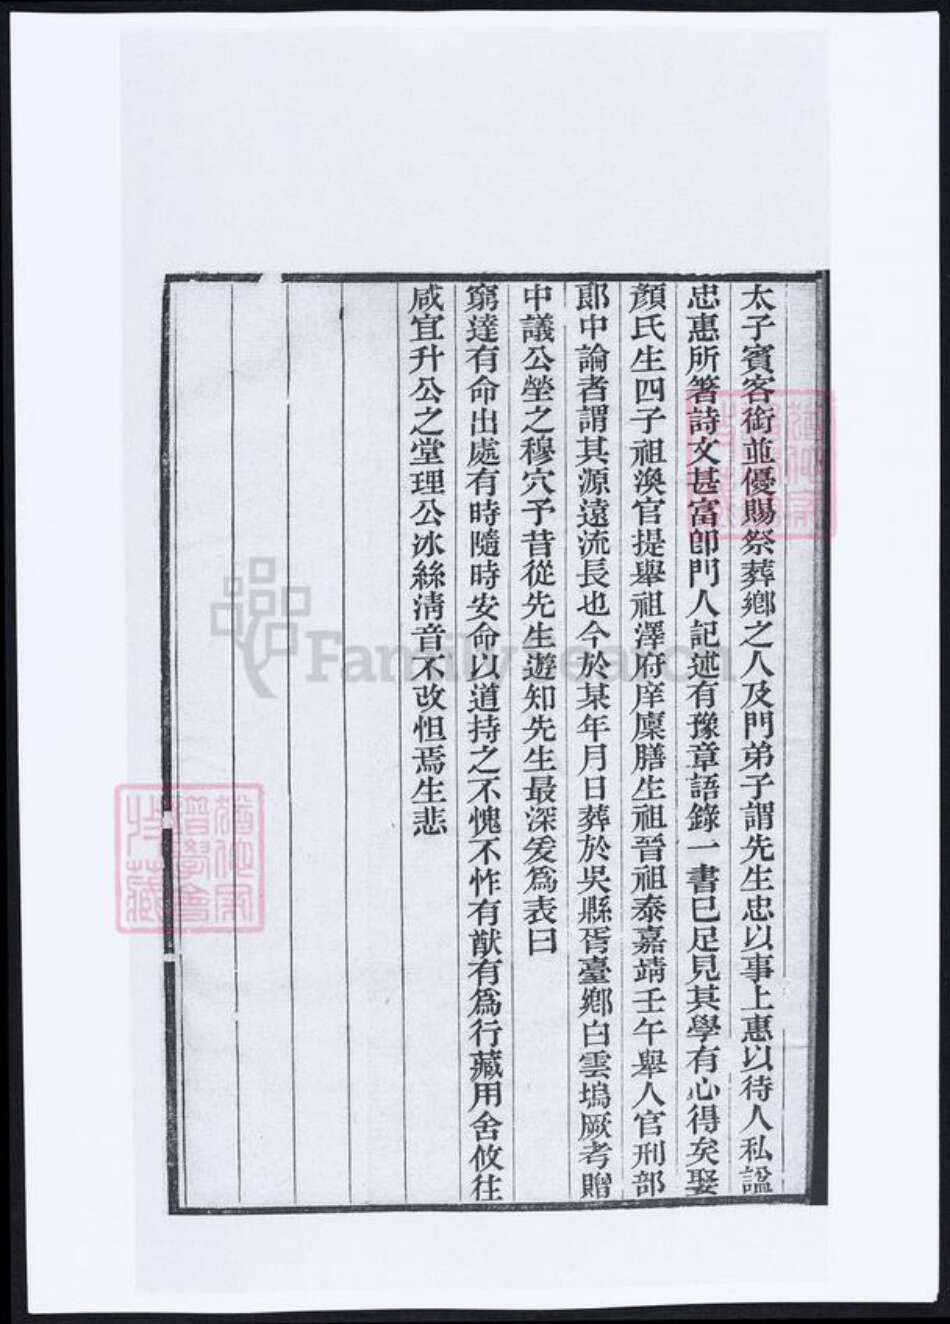 太子賓客銜並優賜祭葬鄕之人及門弟子謂先生忠以事上惠以待人私諡
忠惠所箸詩文甚富卽門人記述有豫章語錄一書已足見其學有心得矣娶
顏氏生四子祖渙官提舉祖澤府庠廩膳生祖晉祖泰嘉靖壬午舉人官刑部
郞中論者謂其源遠流長也今於某年月日葬於吳縣胥臺鄕白雲塢厥考贈
中議公塋之穆穴予昔從先生遊知先生最深爰爲表曰
窮達有命出處有時隨時安命以道持之不愧不怍有猷有爲行藏用舍攸往
咸宜升公之堂理公冰絲淸音不改怛焉生悲
FamilySearch
猶他家
譜學會
收藏